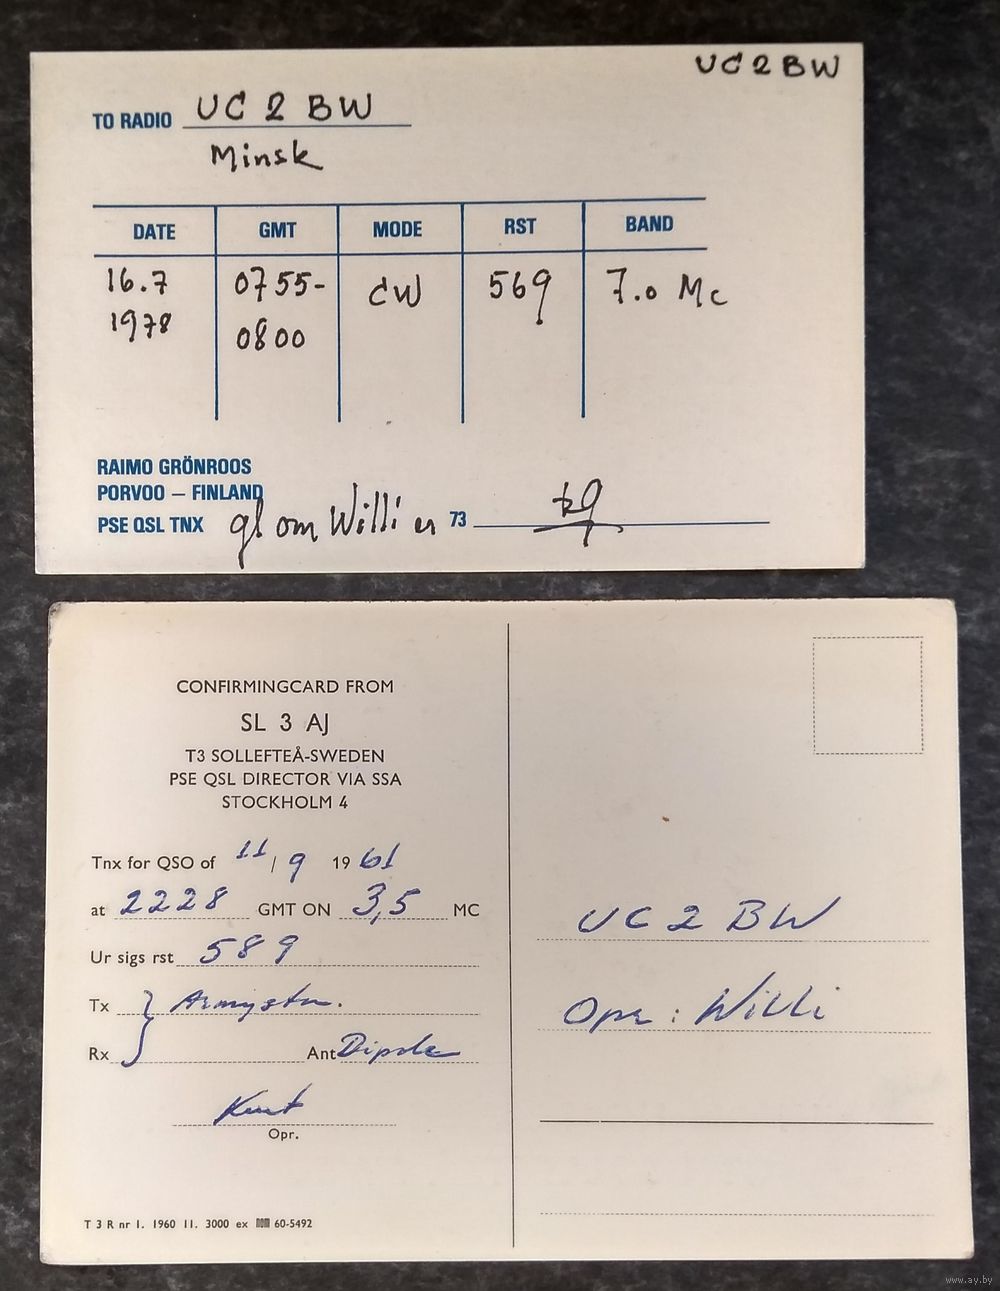 UC2BW
TO RADIO UC2BW
Minsk
DATE GMT MODE RST BAND
16.7 0755- CW 569 7.0 Mc
1978 0800
RAIMO GRÖNROOS
PORVOO – FINLAND
PSE QSL TNX gl om Willi es 73
CONFIRMINGCARD FROM
SL 3 AJ
T3 SOLLEFTEÅ-SWEDEN
PSE QSL DIRECTOR VIA SSA
STOCKHOLM 4
Tnx for QSO of 11/9 1961
at 2228 GMT ON 3,5 MC
Ur sigs rst 589
Tx } Armystn.
Rx Ant Dipole
Kurt
Opr.
T 3 R nr 1. 1960 11. 3000 ex 60-5492
UC2BW
Opr: Willi
www.ay.by